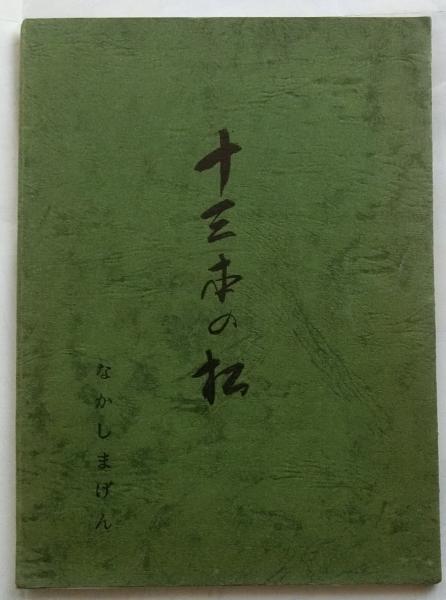 十三本の松
なかしまげん